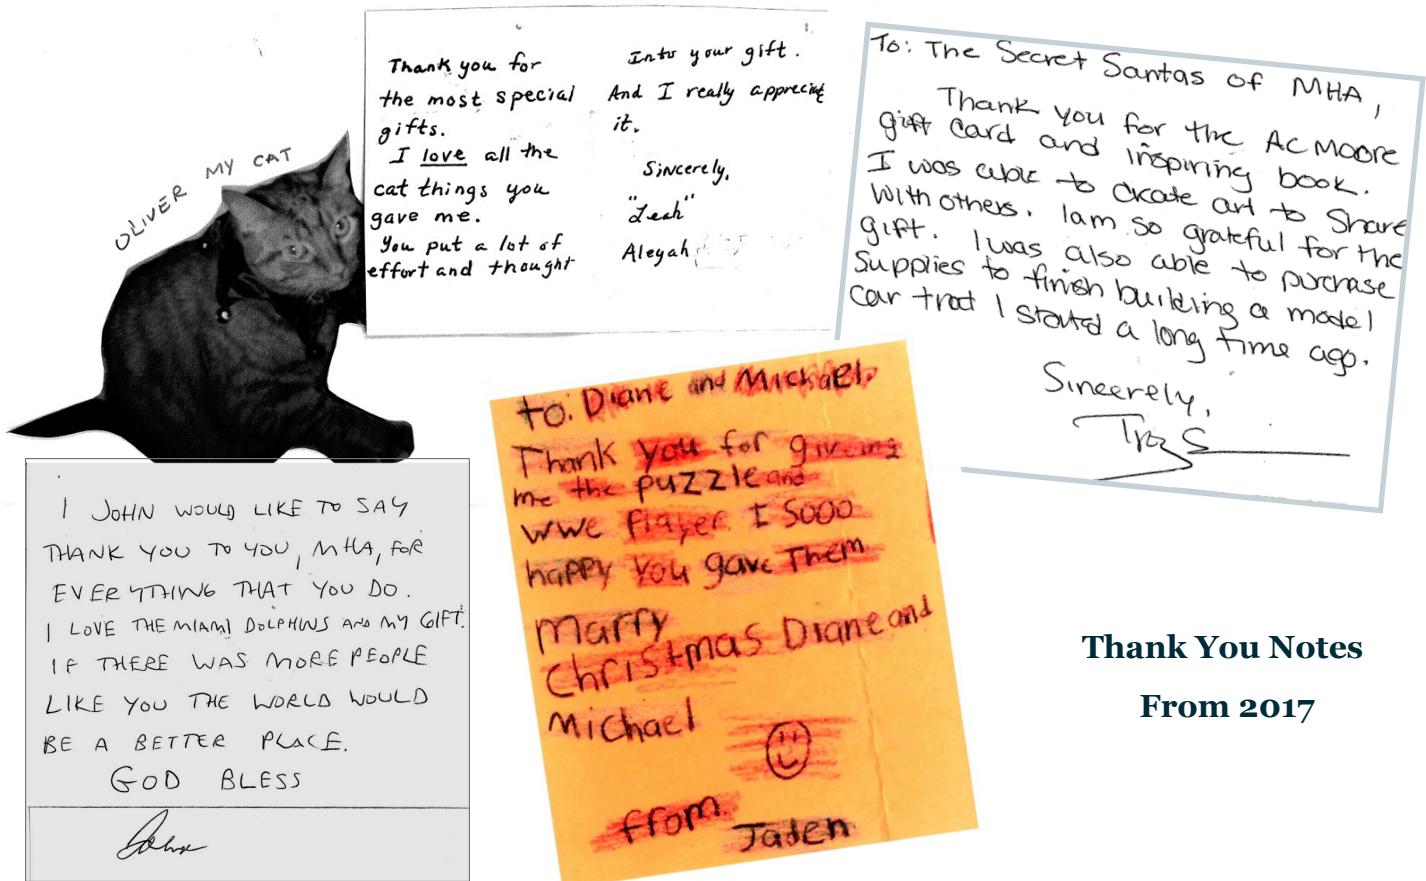 OLIVER MY CAT
Thank you for
the most special
gifts.
I love all the
cat things you
gave me.
You put a lot of
effort and thought
Into your gift.
And I really appreciat
it.
Sincerely,
"Leah"
Aleyah
To: The Secret Santas of MHA,
Thank you for the AC Moore
gift card and inspiring book.
I was able to create art to share
with others. I am so grateful for the
gift. I was also able to purchase
supplies to finish building a model
car that I started a long time ago.
Sincerely,
I JOHN WOULD LIKE TO SAY
THANK YOU TO YOU, MHA, FOR
EVERYTHING THAT YOU DO.
I LOVE THE MIAMI DOLPHINS AND MY GIFT.
IF THERE WAS MORE PEOPLE
LIKE YOU THE WORLD WOULD
BE A BETTER PLACE.
GOD BLESS
John
to: Diane and Michael.
Thank you for giveing
me the puzzle and
wwe Player. I sooo
happy you gave Them
marry
Christmas Diane and
Michael
from
Jaden
Thank You Notes
From 2017